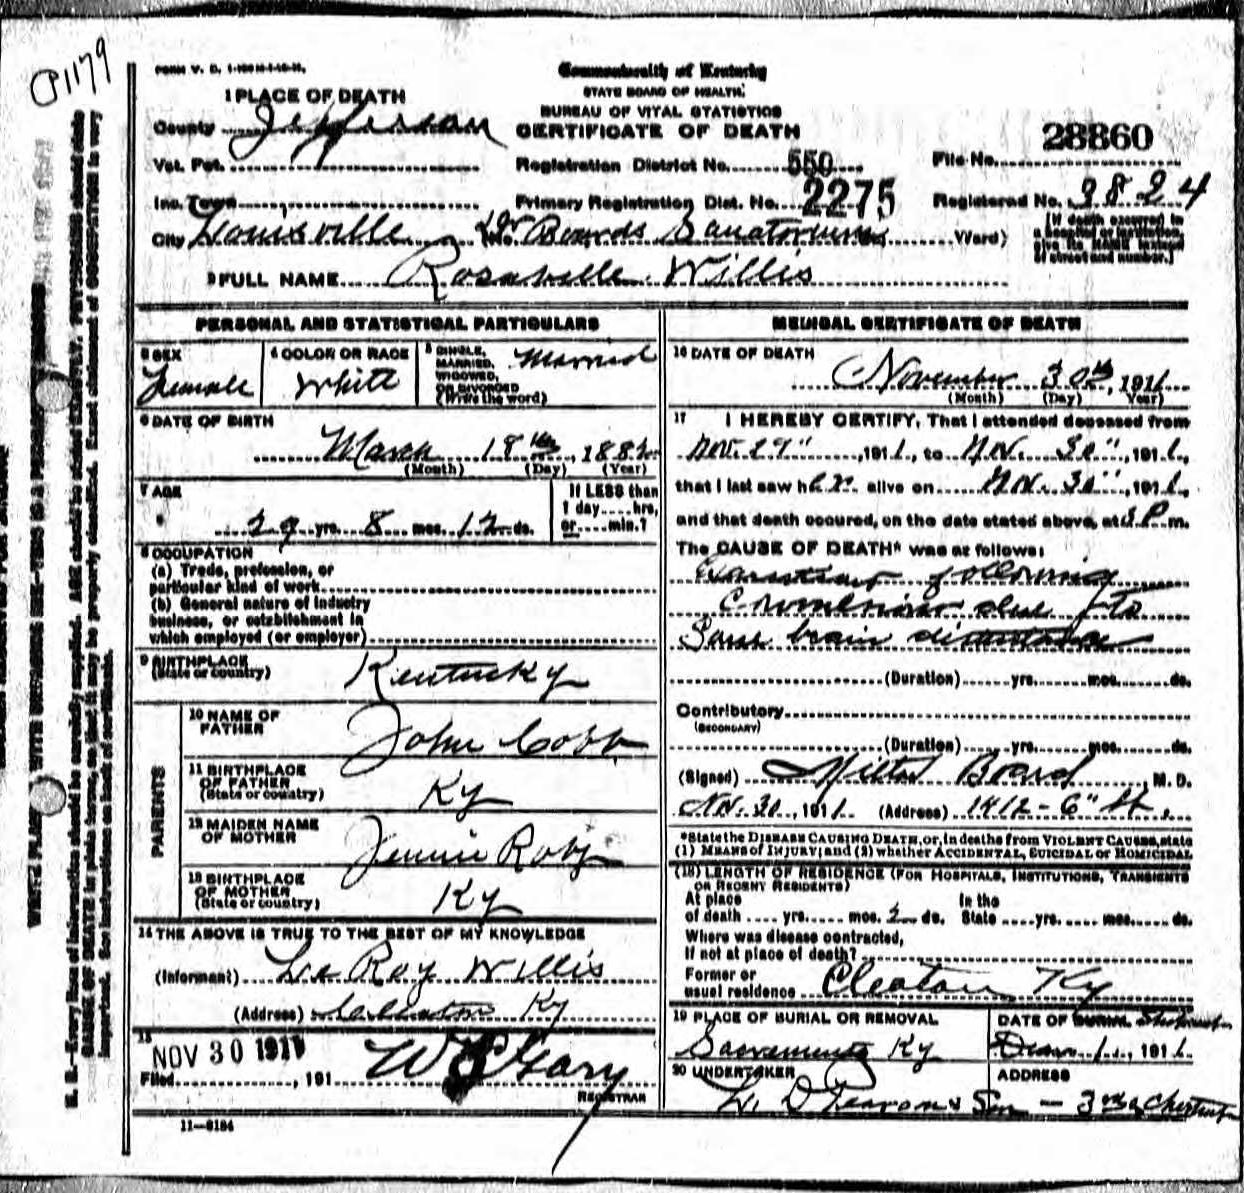 1179
FORM V. S. 1-
Commonwealth of Kentucky
STATE BOARD OF HEALTH.
BUREAU OF VITAL STATISTICS
CERTIFICATE OF DEATH
1 PLACE OF DEATH
County Jefferson
Vot. Pct.
Registration District No. 550
File No. 28860
Inc. Town
Primary Registration Dist. No. 2275
Registered No. 9824
City Louisville (No. Dr Boards Sanatorium St., Ward)
[If death occurred in a hospital or institution, give its NAME instead of street and number.]
2 FULL NAME Rosabelle Willis
PERSONAL AND STATISTICAL PARTICULARS
3 SEX
Female
4 COLOR OR RACE
White
5 SINGLE, MARRIED, WIDOWED, OR DIVORCED (Write the word)
Married
6 DATE OF BIRTH
March 18th, 1882
(Month) (Day) (Year)
7 AGE
29 yrs. 8 mos. 12 ds.
If LESS than 1 day....hrs, or....min.?
8 OCCUPATION
(a) Trade, profession, or
particular kind of work
(b) General nature of industry
business, or establishment in
which employed (or employer)
9 BIRTHPLACE
(State or country)
Kentucky
PARENTS
10 NAME OF FATHER
John Cobb
11 BIRTHPLACE OF FATHER
(State or country)
Ky
12 MAIDEN NAME OF MOTHER
Jennie
13 BIRTHPLACE OF MOTHER
(State or country)
Ky
14 THE ABOVE IS TRUE TO THE BEST OF MY KNOWLEDGE
(Informant) Le Roy Willis
(Address) Ky
15
NOV 30 1911
Filed , 191
REGISTRAR
11—8184
MEDICAL CERTIFICATE OF DEATH
16 DATE OF DEATH
November 30th, 1911
(Month) (Day) (Year)
17 I HEREBY CERTIFY, That I attended deceased from
Nov. 29", 1911, to Nov. 30", 1911,
that I last saw her alive on Nov. 30", 1911,
and that death occured, on the date stated above, at 3 P m.
The CAUSE OF DEATH* was as follows:
Exhaustion following
due to
Some brain disturbance
(Duration) yrs. mos. ds.
Contributory
(SECONDARY)
(Duration) yrs. mos. ds.
(Signed) Milton Board, M. D.
Nov. 30, 1911 (Address) 1412 - 6" St,
*State the DISEASE CAUSING DEATH, or, in deaths from VIOLENT CAUSES, state
(1) MEANS of INJURY; and (2) whether ACCIDENTAL, SUICIDAL or HOMICIDAL
(18) LENGTH OF RESIDENCE (FOR HOSPITALS, INSTITUTIONS, TRANSIENTS OR RECENT RESIDENTS)
At place of death .... yrs. mos. 2 ds. In the State .... yrs. mos. ds.
Where was disease contracted,
If not at place of death?
Former or usual residence Cleaton Ky
19 PLACE OF BURIAL OR REMOVAL
Sacramento Ky
DATE OF BURIAL
1, 1911
20 UNDERTAKER
L. D Pearson & Son
ADDRESS
3rd & Chestnut
N. B.—Every item of information should be carefully supplied. AGE should be stated EXACTLY. PHYSICIANS should state
CAUSE OF DEATH in plain terms, so that it may be properly classified. Exact statement of OCCUPATION is very
important. See instructions on back of certificate.